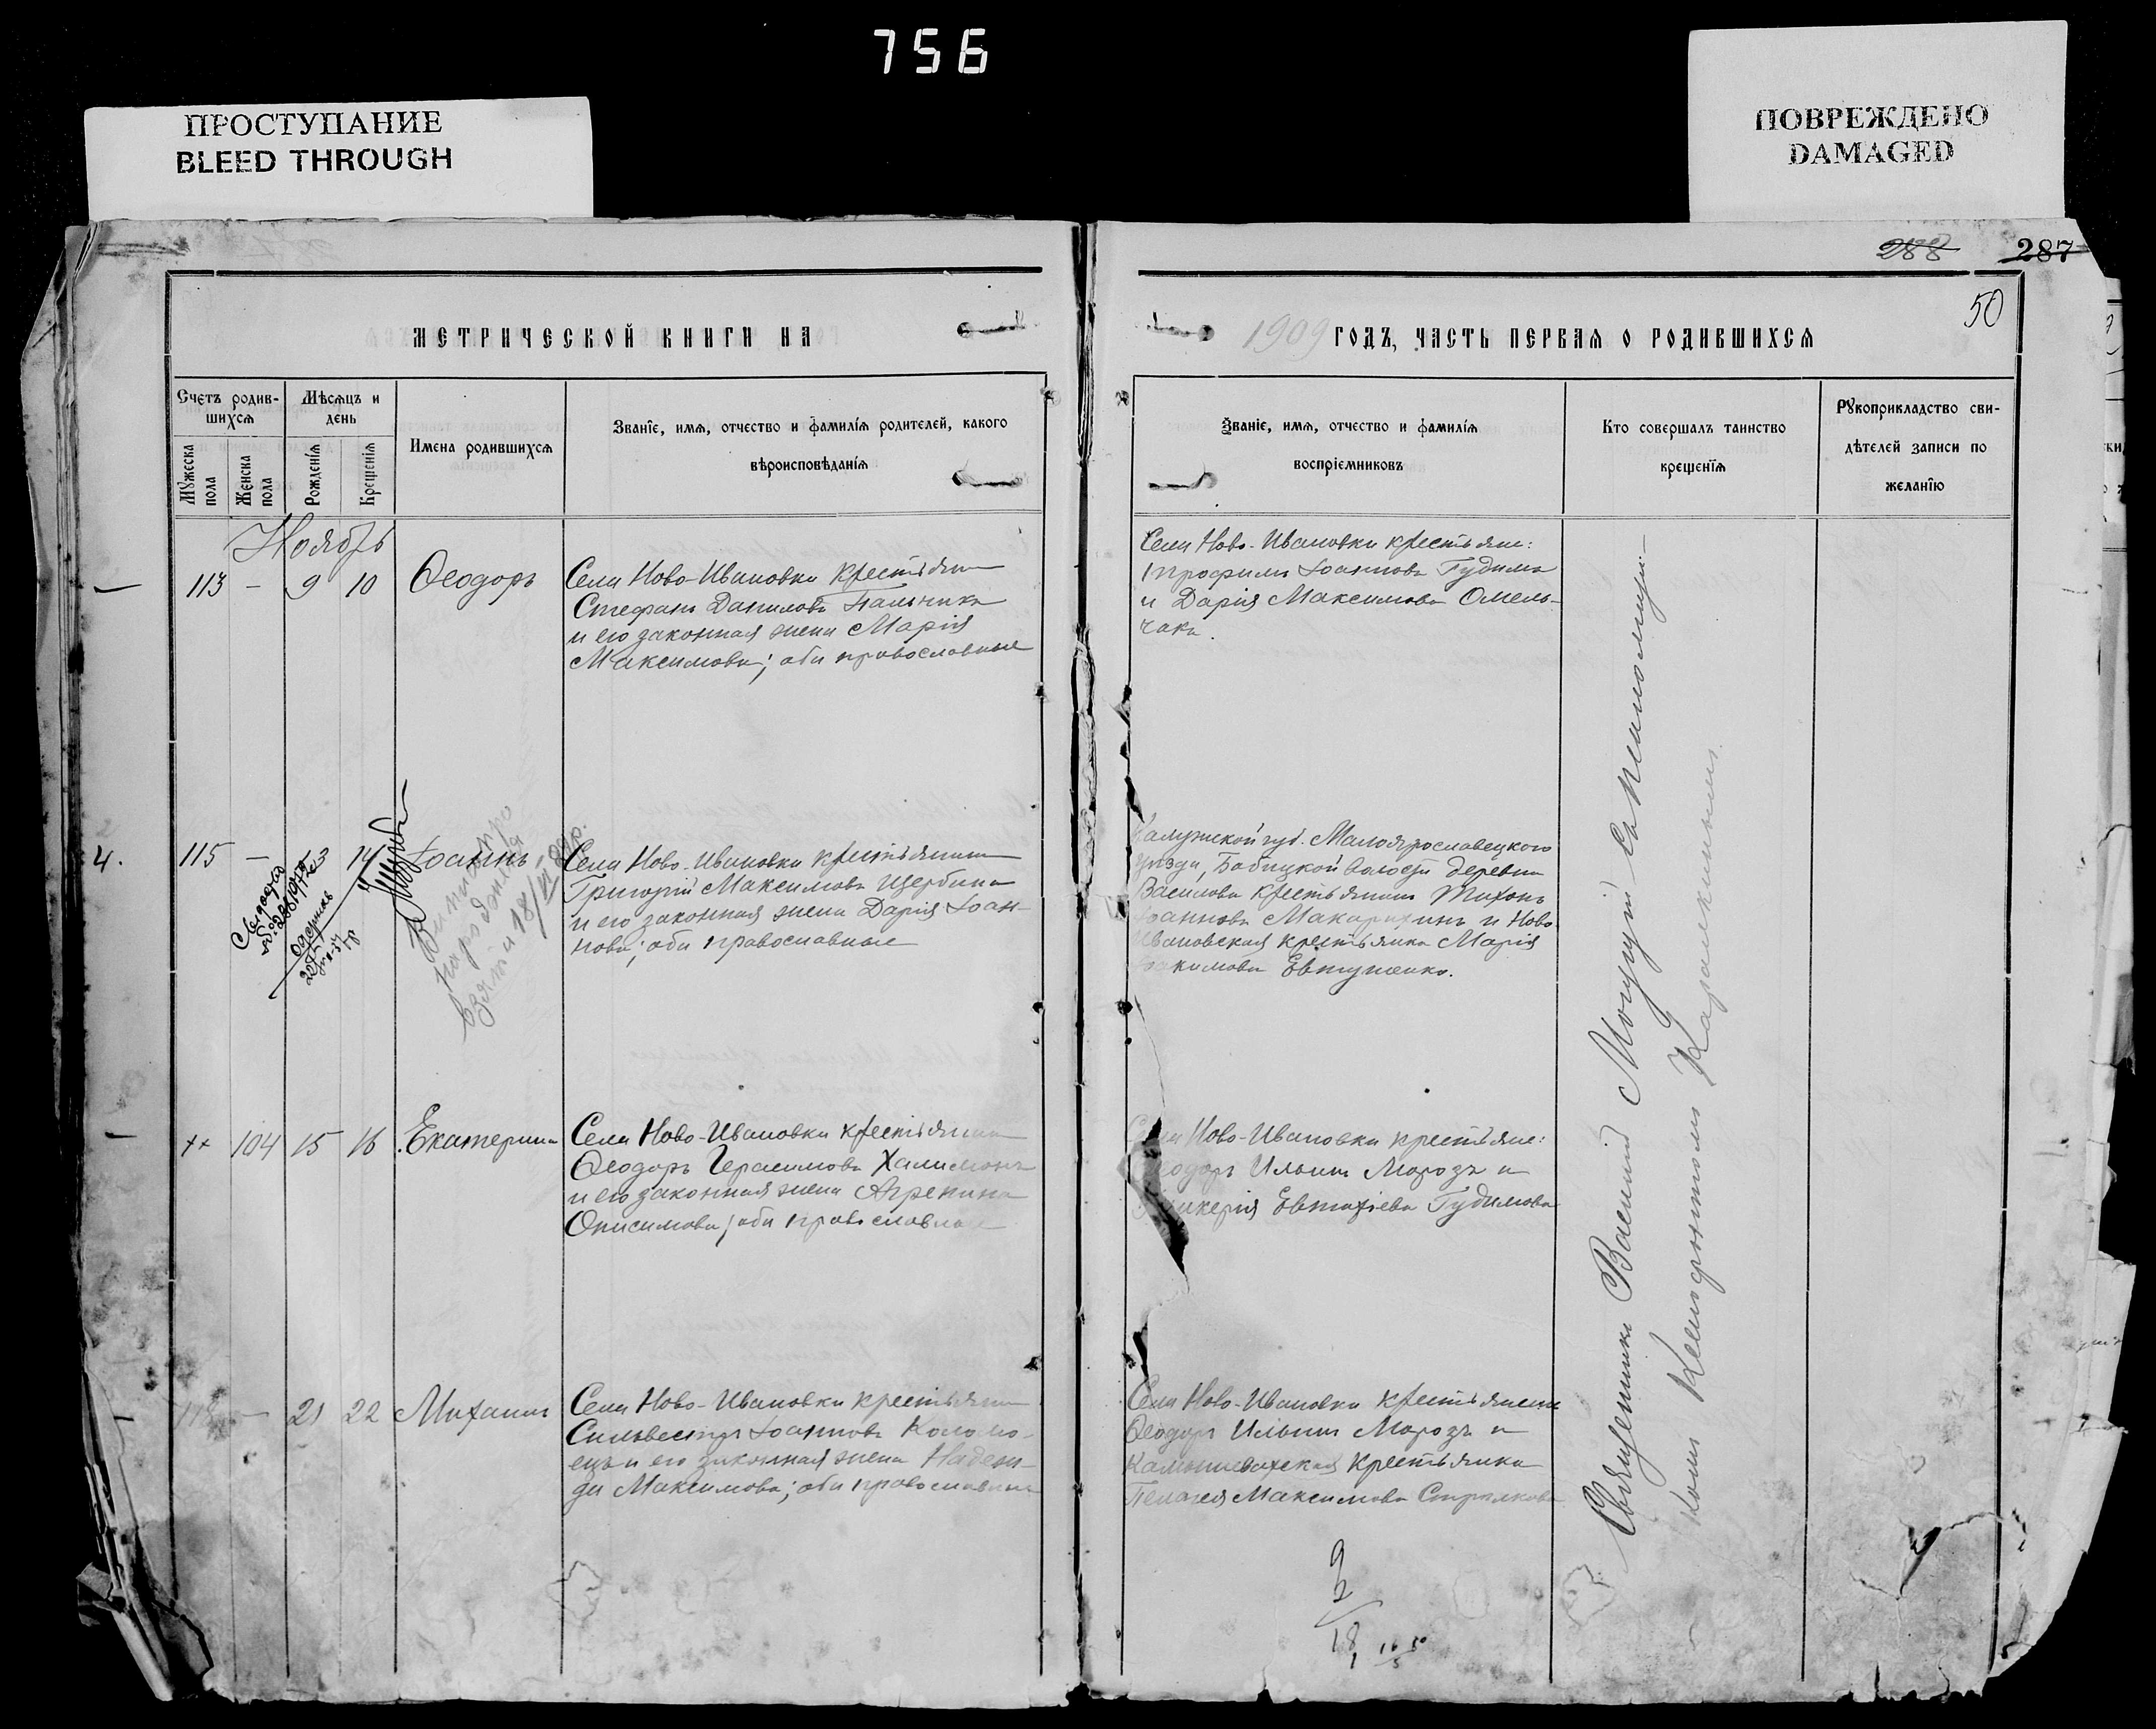 756
ПРОСТУПАНИЕ
BLEED THROUGH
ПОВРЕЖДЕНО
DAMAGED
288
287
50
МЕТРИЧЕСКОЙ КНИГИ НА
1909 ГОДЪ, ЧАСТЬ ПЕРВАЯ О РОДИВШИХСЯ
Счетъ родив-
шихся
Мѣсяцъ и
день
Мужеска
пола
Женска
пола
Рожденія
Крещенія
Имена родившихся
Званіе, имя, отчество и фамилія родителей, какого
вѣроисповѣданія
Званіе, имя, отчество и фамилія
воспріемниковъ
Кто совершалъ таинство
крещенія
Рукоприкладство сви-
дѣтелей записи по
желанію
Ноябрь
113 - 9 10 Ѳеодоръ
Села Ново-Ивановки крестьянин
Стефанъ Данилова
и его законная жена Марія
Максимова; оба православные
Села Ново-Ивановки крестьяне:
Іоаннова Гудима
и Дарія Максимова Омель-
чака.
4.
115 - 14 Іоаннъ
Села Ново-Ивановки крестьянинъ
Григорій Максимова Щербина
и его законная жена Дарія Іоан-
нова; оба православные
Калужской губ. Малоярославецкого
уѣзда, Бабицкой волости деревни
Василова крестьянинъ Тихонъ
Іоаннова Макарихинъ и Ново-
Ивановская крестьянка Марія
Іоакимова Евтушенко.
104 15 16 Екатерина
Села Ново-Ивановки крестьянинъ
Ѳеодоръ Герасимова Халимонъ
и его законная жена Агрепина
Онисимова; оба православные
Села Ново-Ивановки крестьяне:
Ѳеодоръ Ильинъ Морозъ и
Гликерія Евтихіева Гудимова
- 21 22 Михаилъ
Села Ново-Ивановки крестьянин
Сильвестръ Іоаннова Коломо-
ецъ и его законная жена Надеж-
да Максимова; оба православные
Села Ново-Ивановки крестьяне
Ѳеодоръ Ильинъ Морозъ и
крестьянка
Пелагея Максимова
Священникъ Василій Могущій съ псаломщи-
комъ Ксенофонтомъ
9
2
18